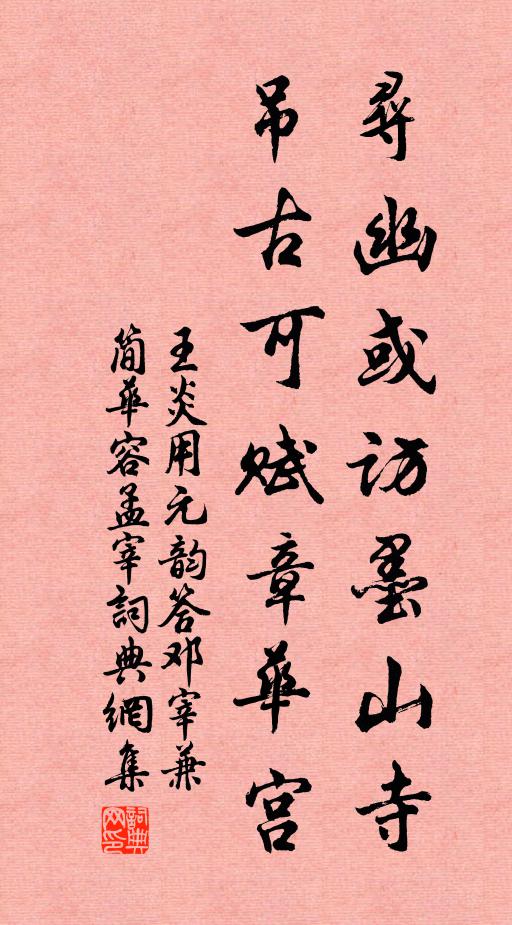 尋幽或访墨山寺
吊古可赋章華宫
王炎用元韵答邓宰兼
简華容孟宰詞典網集
詞典网印